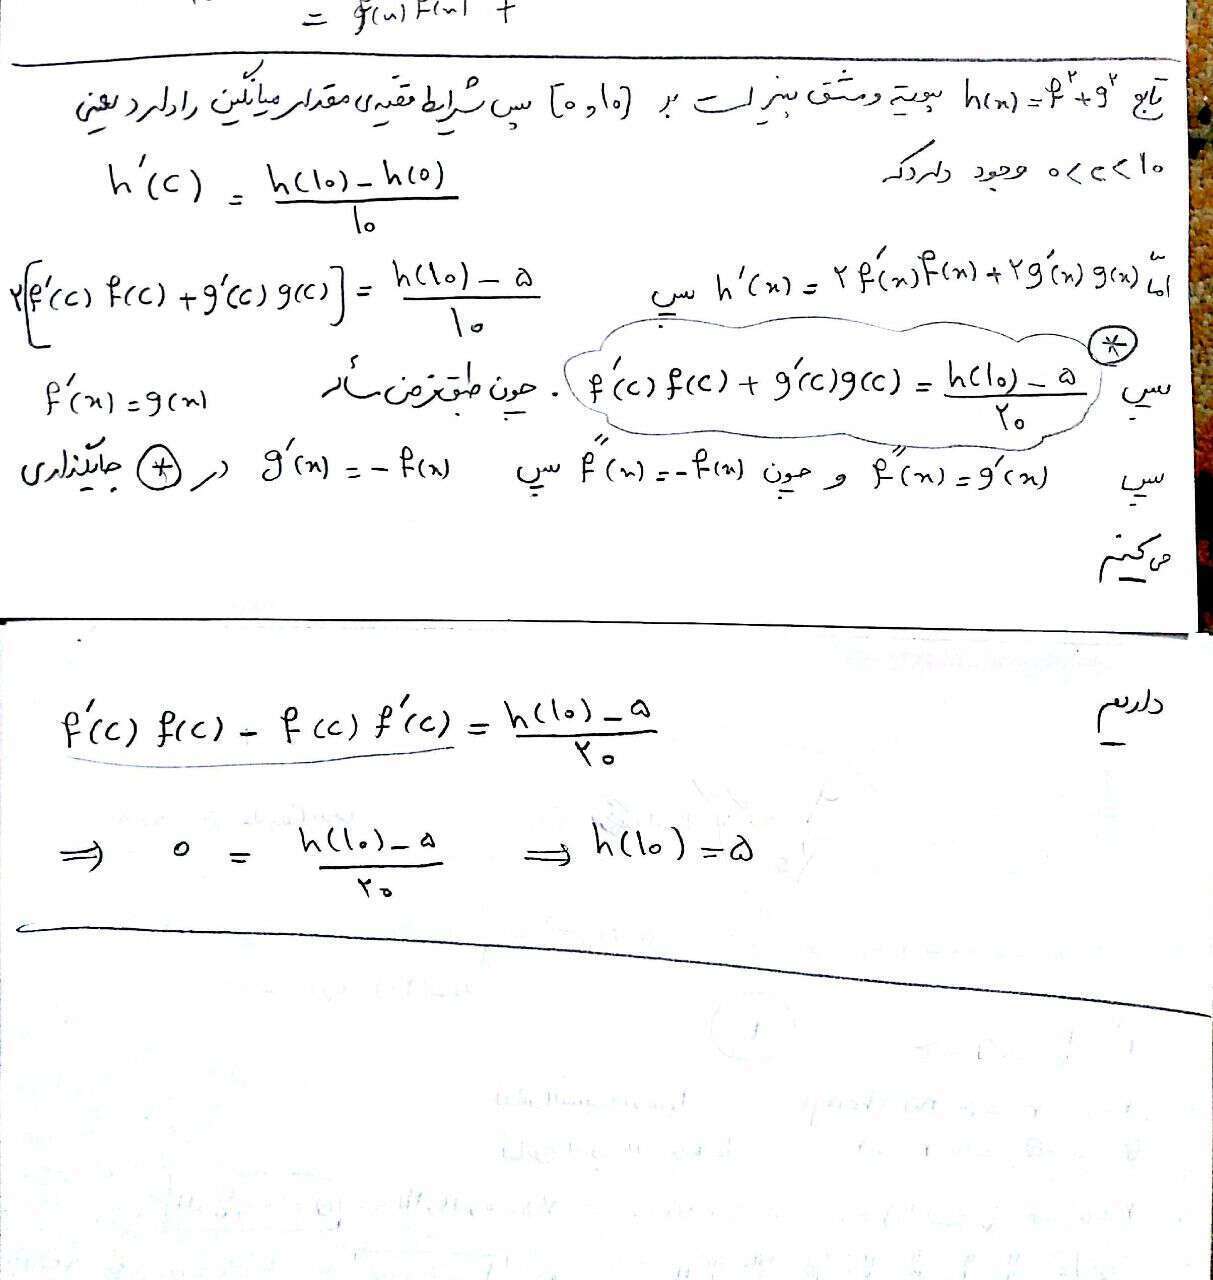 = g(x) F(x) +
تابع h(x) = f²+g² پیوسته و مشتق پذیر است بر [0,10] پس شرایط قضیه‌ی مقدار میانگین را دارد یعنی
0<c<10 وجود دارد که h'(c) = (h(10) - h(0))/10
اما h'(x) = ۲f'(x)f(x) + ۲g'(x)g(x) پس ۲[f'(c) f(c) + g'(c) g(c)] = (h(10) - ۵)/10
پس f'(c) f(c) + g'(c)g(c) = (h(10) - ۵)/۲۰ (*) . چون طبق فرض مسأله f'(x) = g(x)
پس f''(x) = g'(x) و چون f''(x) = -f(x) پس g'(x) = -f(x) در (*) جایگذاری
می‌کنیم
داریم f'(c) f(c) - f(c) f'(c) = (h(10) - ۵)/۲۰
⇒ 0 = (h(10) - ۵)/۲۰ ⇒ h(10) = ۵